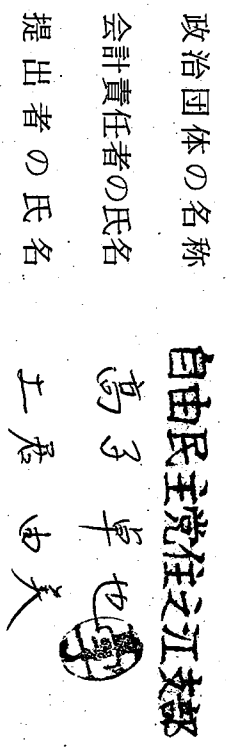 政治団体の名称 自由民主党住之江支部
会計責任者の氏名 高子卓也
提出者の氏名 土居由美